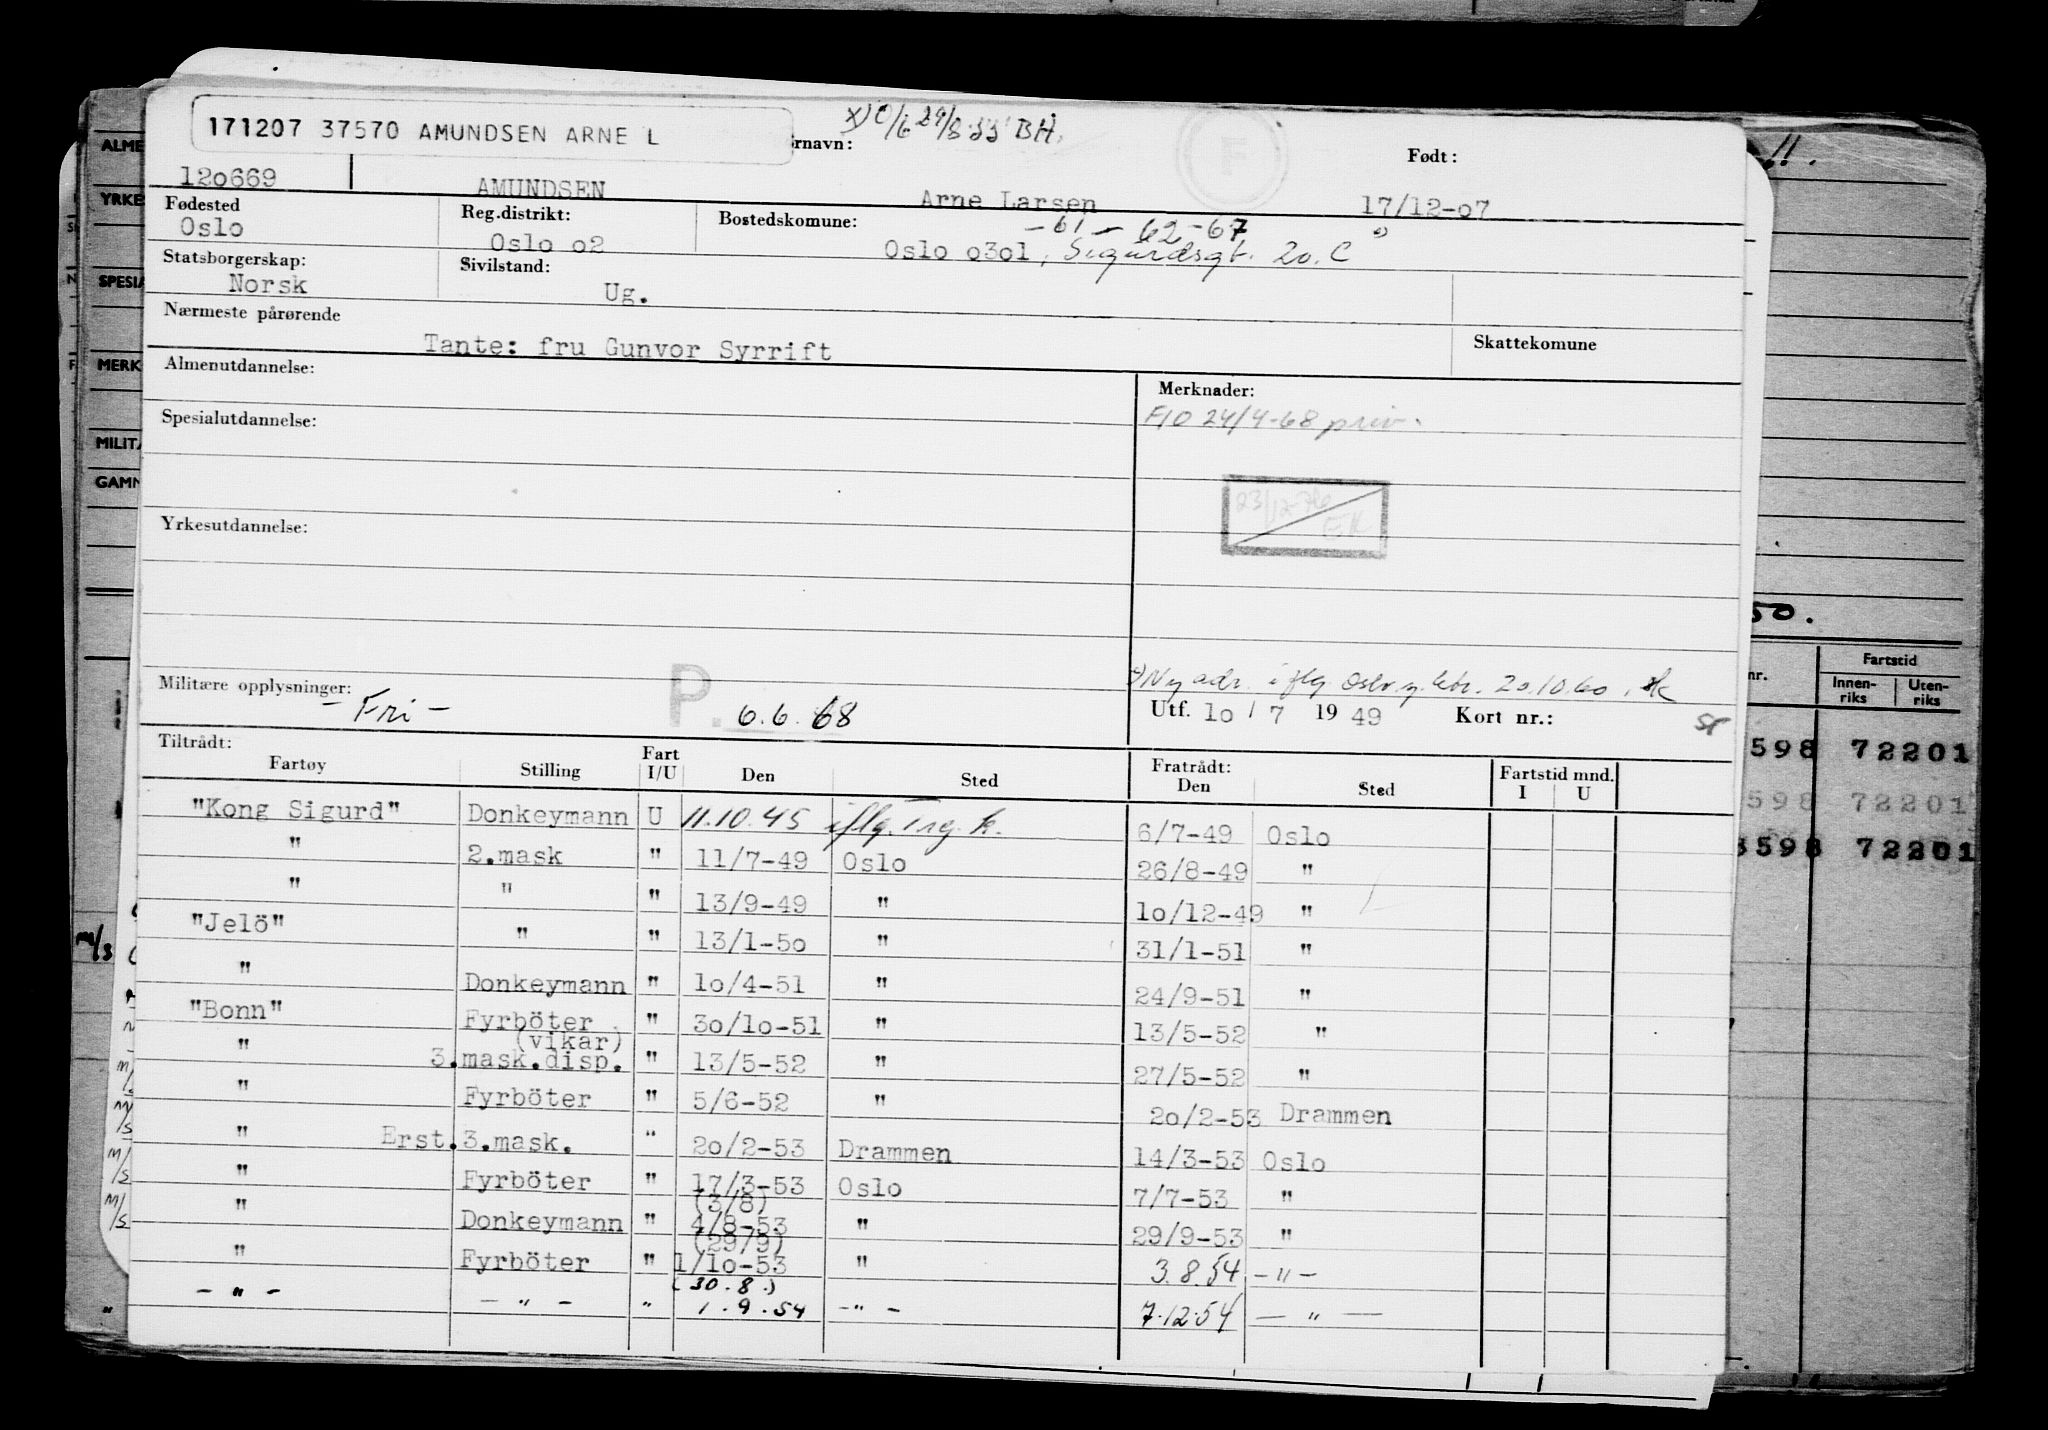 171207 37570 AMUNDSEN ARNE L
rnavn:
BH.
Født:
120669 AMUNDSEN Arne Larsen 17/12-07
Fødested Reg.distrikt: Bostedskomune: -61-62-67
Oslo Oslo o2 Oslo o3ol, Sigurdsgt. 20.C
Statsborgerskap: Sivilstand:
Norsk Ug.
Nærmeste pårørende Skattekomune
Tante: fru Gunvor Syrrift
Almenutdannelse: Merknader:
F10 24/4-68 priv.
Spesialutdannelse:
23/12-76
EK
Yrkesutdannelse:
Militære opplysninger: - Fri - P. 6.6.68
Ny adr. iflg Oslo 20.10.60.
Utf. lo / 7 1949 Kort nr.:
Tiltrådt: Fratrådt: Fartstid mnd.
Fartøy Stilling Fart I/U Den Sted Den Sted I U
"Kong Sigurd" Donkeymann U 11.10.45 iflg. 6/7-49 Oslo
" 2.mask " 11/7-49 Oslo 26/8-49 "
" " " 13/9-49 " lo/12-49 "
"Jelö" " " 13/1-5o " 31/1-51 "
" Donkeymann " lo/4-51 " 24/9-51 "
"Bonn" Fyrböter " 3o/lo-51 " 13/5-52 "
(vikar)
" 3.mask.disp. " 13/5-52 " 27/5-52 "
" Fyrböter " 5/6-52 " 2o/2-53 Drammen
" Erst.3.mask. " 2o/2-53 Drammen 14/3-53 Oslo
" Fyrböter " 17/3-53 Oslo 7/7-53 "
(3/8)
" Donkeymann " 4/8-53 " 29/9-53 "
(29/9)
" Fyrböter " 1/lo-53 " 3.8.54 - " -
(30.8.)
- " - - " - " 1.9.54 - " - 7.12.54 - " -
ALME
YRKES
SPESIA
MERK
MILITÆ
GAMN
m/s
m/s
m/s
m/s
m/s
"
11.
50.
nr. Fartstid
Innen-riks Uten-riks
598 72201
598 72201
3598 72201